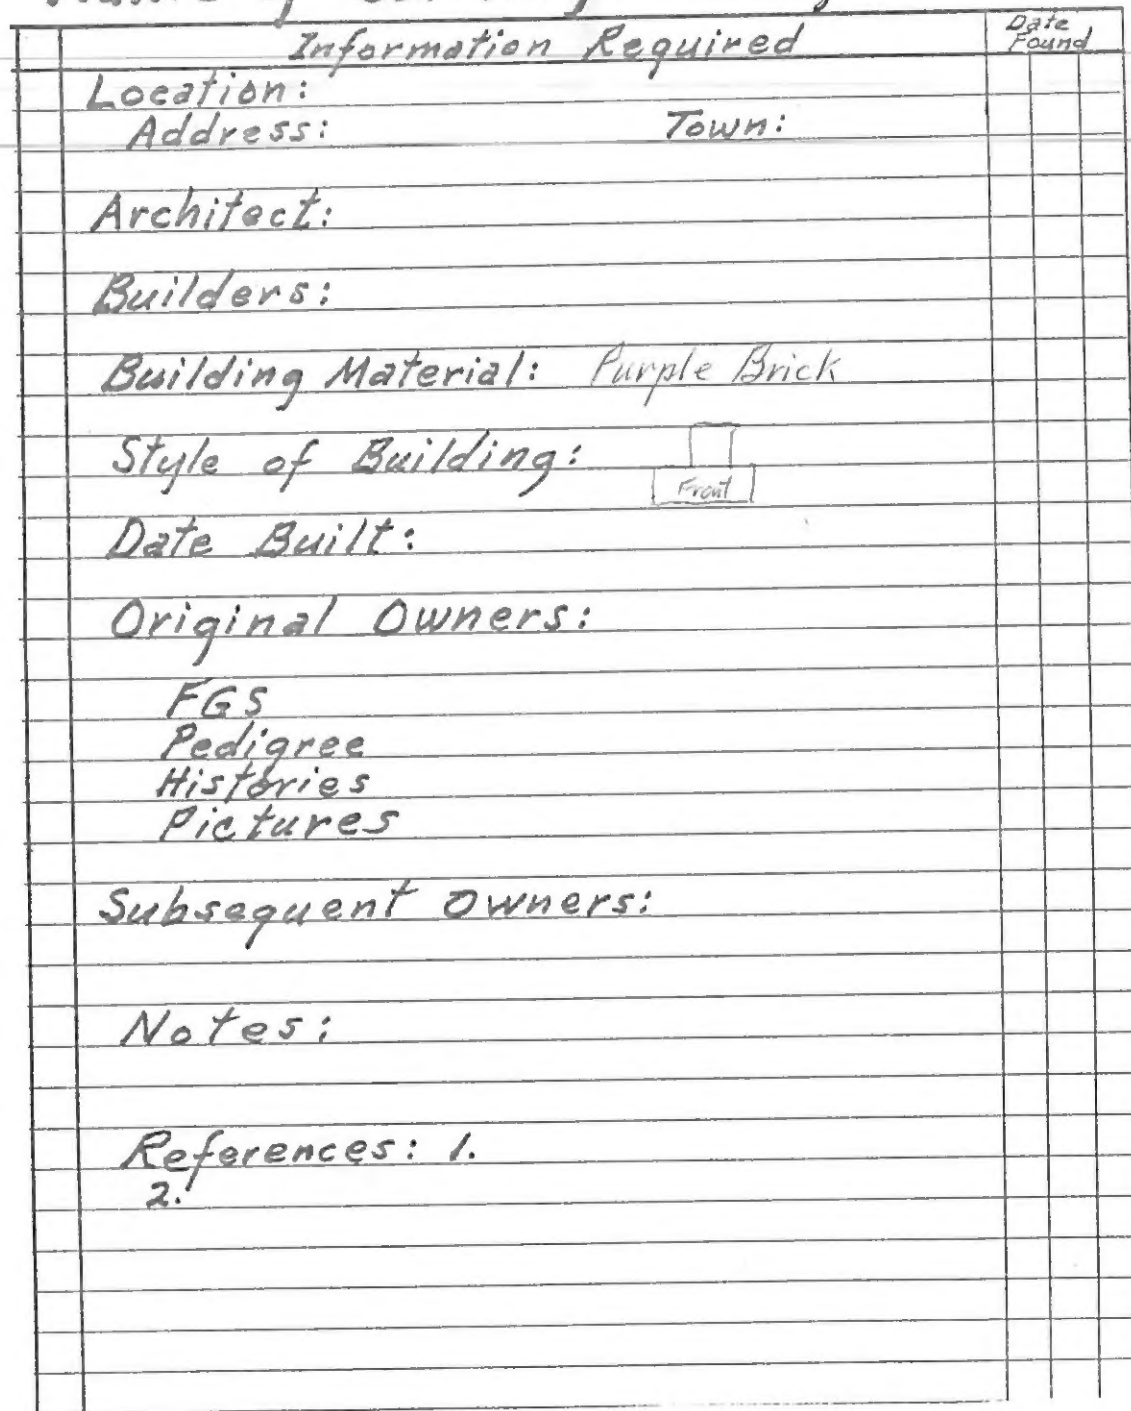 Information Required
Date
Found
Location:
Address: Town:
Architect:
Builders:
Building Material: Purple Brick
Style of Building:
Front
Date Built:
Original Owners:
FGS
Pedigree
Histories
Pictures
Subsequent Owners:
Notes:
References: 1.
2.